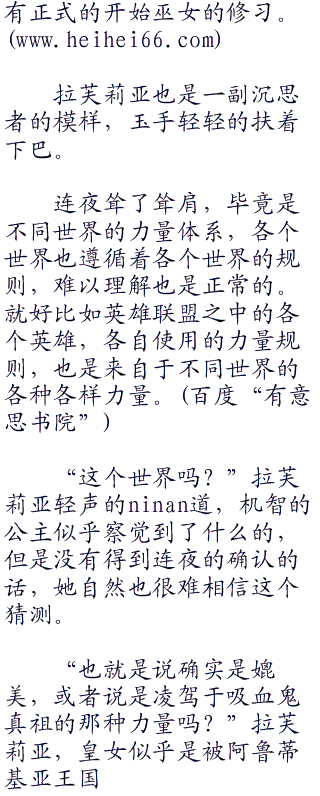 有正式的开始巫女的修习。
(www.heihei66.com)
拉芙莉亚也是一副沉思
者的模样，玉手轻轻的扶着
下巴。
连夜耸了耸肩，毕竟是
不同世界的力量体系，各个
世界也遵循着各个世界的规
则，难以理解也是正常的。
就好比如英雄联盟之中的各
个英雄，各自使用的力量规
则，也是来自于不同世界的
各种各样力量。(百度“有意
思书院”)
“这个世界吗？”拉芙
莉亚轻声的ninan道，机智的
公主似乎察觉到了什么的，
但是没有得到连夜的确认的
话，她自然也很难相信这个
猜测。
“也就是说确实是媲
美，或者说是凌驾于吸血鬼
真祖的那种力量吗？”拉芙
莉亚，皇女似乎是被阿鲁蒂
基亚王国